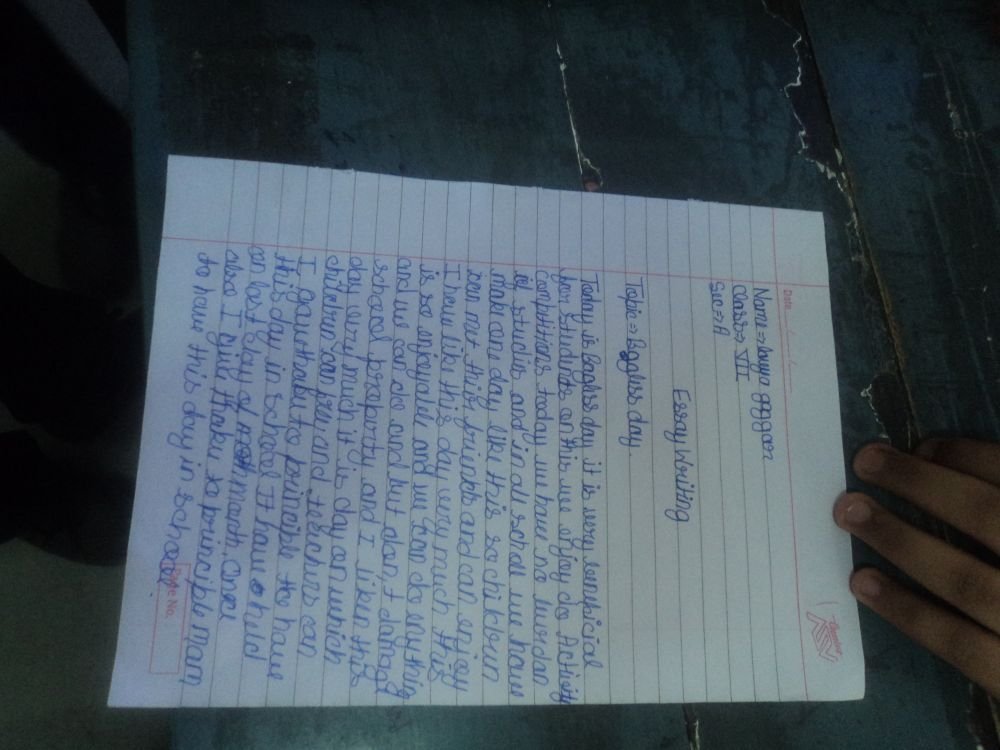 Date
Name ⇒ louya aggaor
Class ⇒ VII
Sec ⇒ A
Essay Writing
Topic ⇒ Bagless day
Today is Bagless day it is very benificial
for students on this we enjoy do Activity
compitions today we have no burdan
of studies and in all school we have
make one day like this so children
can met this friends and can enjoy
I have like this day very much this
is so enjoyable and we can do enything
and we can do and but don,t damage
school property and I liken this
day very much it is day on which
children can free and teachers can
I gave thaku to principle the have
this day in school It have huld
on last day of month once
also I give thaku to principle mam
to have this day in school
Page No.